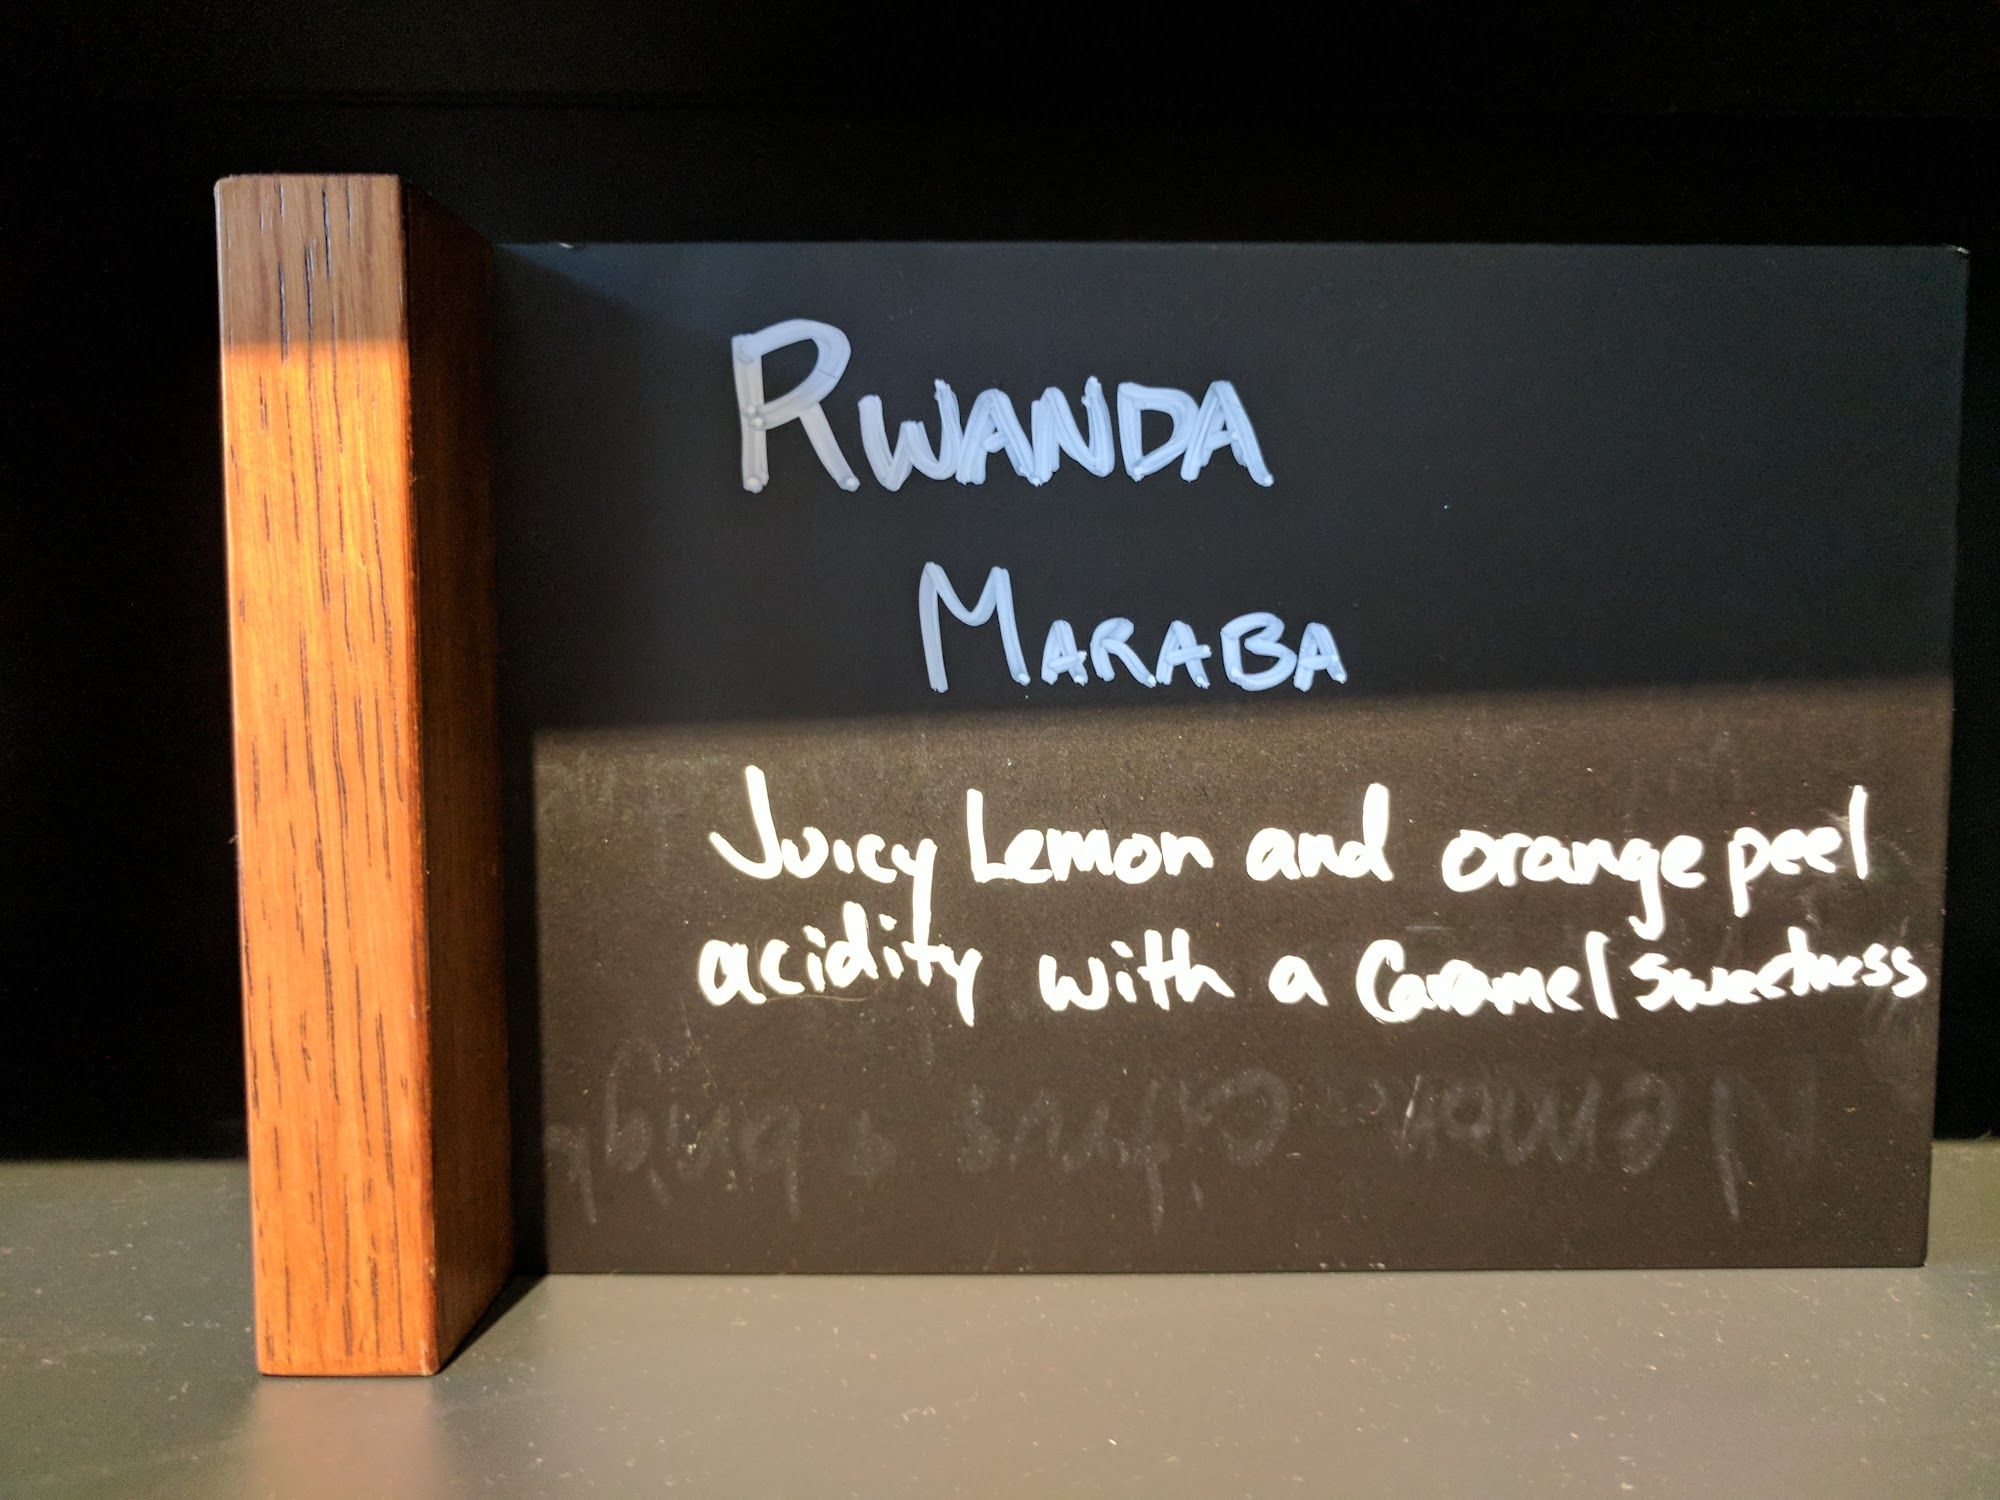 RWANDA
MARABA
Juicy Lemon and orange peel
acidity with a Caramel sweetness